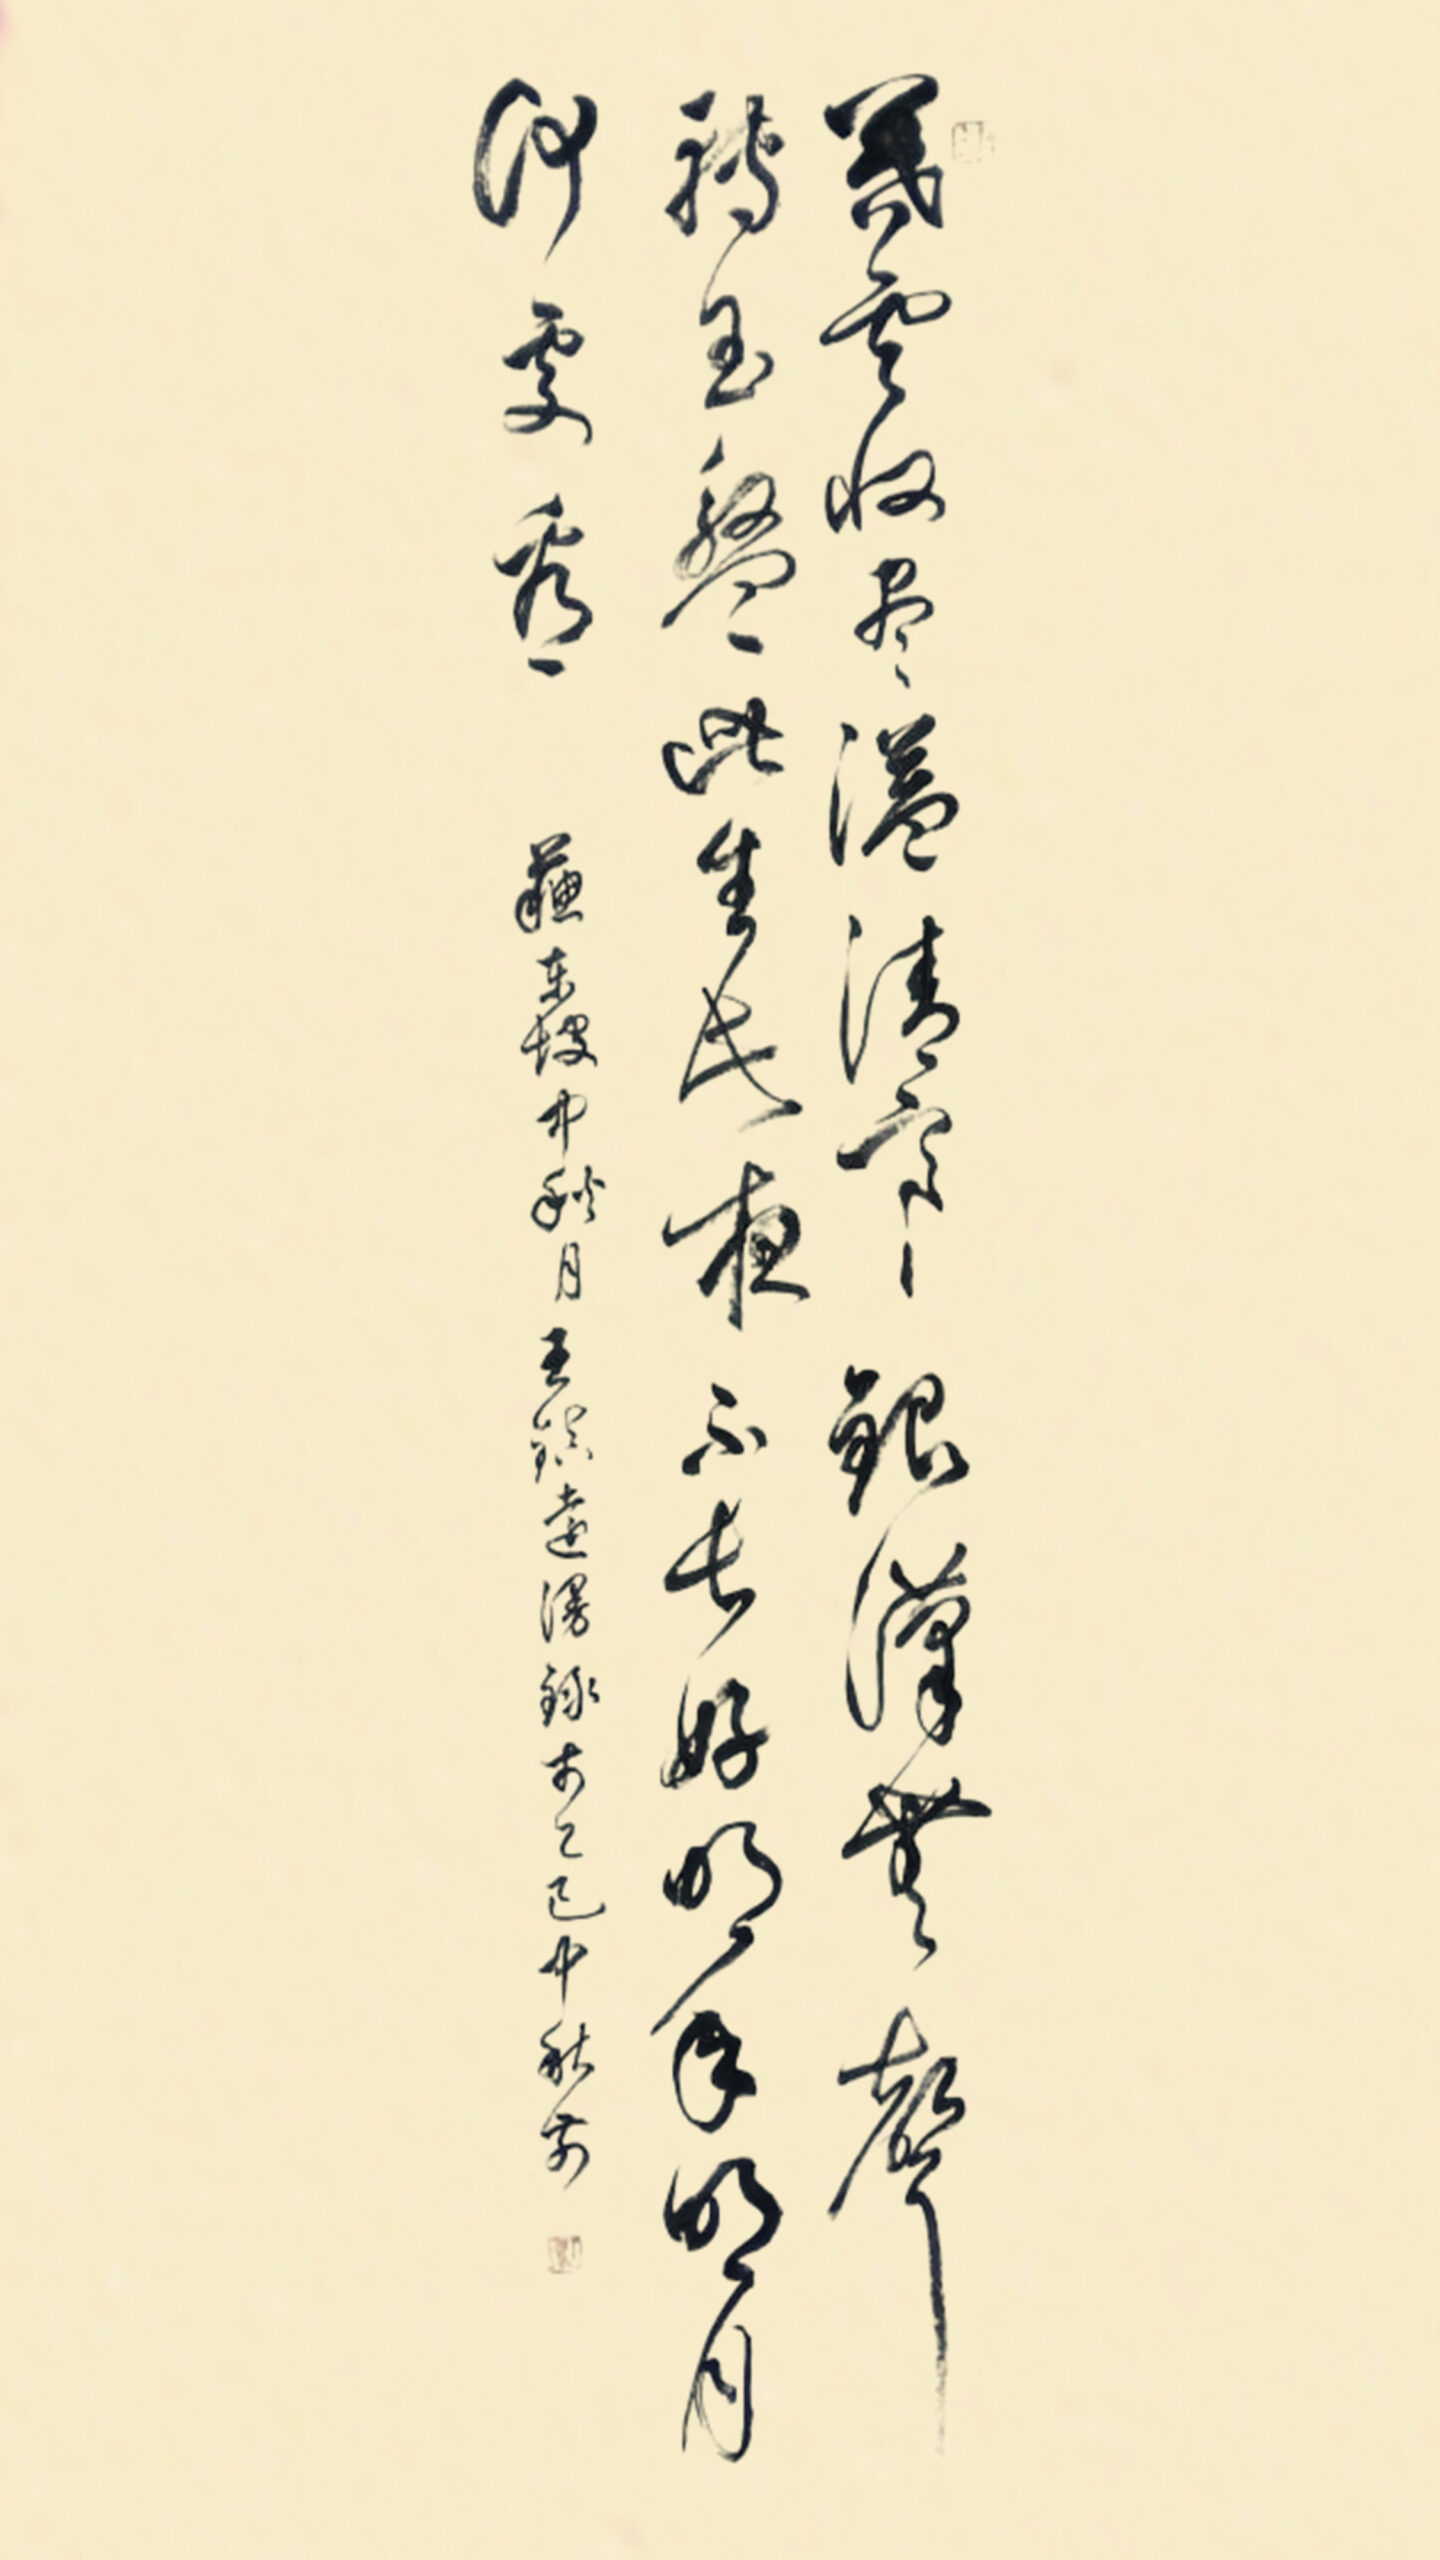 暮雲收盡溢清寒銀漢無聲
轉玉盤此生此夜不長好明年明月
何處看
蘇東坡中秋月王鎮遠漫錄於乙巳中秋前